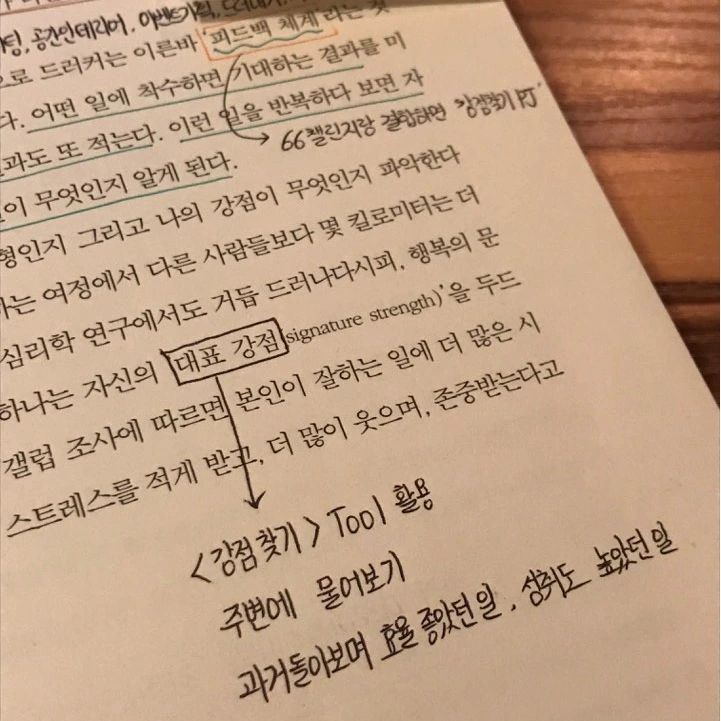 팅, 공간인테리어, 이벤트기획, 드러내기
으로 드러커는 이른바 '피드백 체계'라는 것
다. 어떤 일에 착수하면 기대하는 결과를 미
과도 또 적는다. 이런 일을 반복하다 보면 자
66챌린지랑 결합하면 '강점찾기 PJ'
이 무엇인지 알게 된다.
형인지 그리고 나의 강점이 무엇인지 파악한다
하는 여정에서 다른 사람들보다 몇 킬로미터는 더
심리학 연구에서도 거듭 드러나다시피, 행복의 문
하나는 자신의 '대표 강점(signature strength)'을 두드
갤럽 조사에 따르면 본인이 잘하는 일에 더 많은 시
스트레스를 적게 받고, 더 많이 웃으며, 존중받는다고
<강점찾기> Tool 활용
주변에 물어보기
과거돌아보며 효율 좋았던 일, 성취도 높았던 일